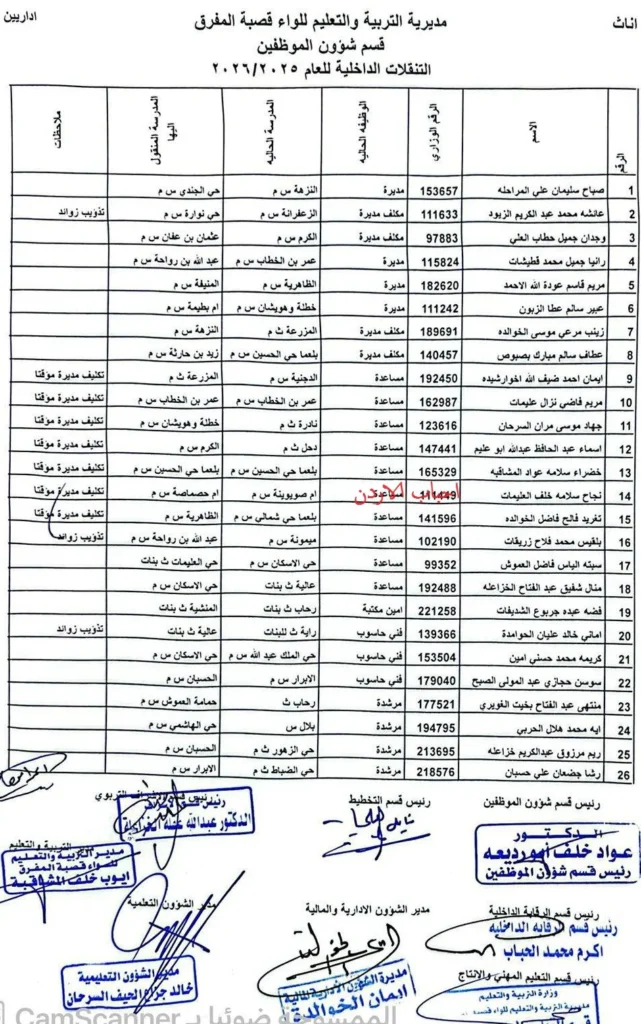 اناث
مديرية التربية والتعليم للواء قصبة المفرق
اداريين
قسم شؤون الموظفين
التنقلات الداخلية للعام ٢٠٢٦/٢٠٢٥
الرقم الاسم الرقم الوزاري الوظيفه الحاليه المدرسة الحاليه المدرسة المنقول اليها ملاحظات
1 صباح سليمان علي المراحله 153657 مديرة النزهة س م حي الجندي س م
2 عائشه محمد عبد الكريم الزيود 111633 مكلف مديرة الزعفرانة س م حي نوارة س م تذويب زوائد
3 وجدان جميل حطاب العلي 97883 مكلف مديرة الكرم س م عثمان بن عفان س م
4 رانيا جميل محمد قطيشات 115824 مديرة عمر بن الخطاب س م عبد الله بن رواحة س م
5 مريم قاسم عودة الله الاحمد 182620 مديرة الظاهرية س م المنيفة س م
6 عبير سالم عطا الزبون 111242 مديرة خطلة وهويشان س م ام بطيمة س م
7 زينب مرعي موسى الخوالده 189691 مكلف مديرة المزرعة ث م النزهة س م
8 عطاف سالم مبارك بصبوص 140457 مديرة بلعما حي الحسين س م زيد بن حارثة س م
9 ايمان احمد ضيف الله اخوارشيده 192450 مساعدة الدجنية س م المزرعة ث م تكليف مديرة مؤقتا
10 مريم فاضي نزال عليمات 162987 مساعدة عمر بن الخطاب س م عمر بن الخطاب س م تكليف مديرة مؤقتا
11 جهاد موسى مران السرحان 123616 مساعدة نادرة ث م خطلة وهويشان س م تكليف مديرة مؤقتا
12 اسماء عبد الحافظ عبدالله ابو عليم 147441 مساعدة دحل ث م الكرم س م تكليف مديرة مؤقتا
13 خضراء سلامه عواد المشاقبه 165329 مساعدة بلعما حي الحسين س م بلعما حي الحسين س م تكليف مديرة مؤقتا
14 نجاح سلامه خلف العليمات مساعدة ام صويوينة س م ام حصماصة س م تكليف مديرة مؤقتا
15 تغريد فالح فاضل الخوالده 141596 مساعدة بلعما حي شمالي س م الظاهرية س م تكليف مديرة مؤقتا
16 بلقيس محمد فلاح زريقات 102190 مساعدة ميمونة س م عبد الله بن رواحة س م تذويب زوائد
17 سبته الياس فاضل العموش 99352 مساعدة حي الاسكان س م حي العليمات ث بنات
18 منال شفيق عبد الفتاح الخزاعله 192488 مساعدة عالية ث بنات حي الاسكان س م
19 فضه عبده جربوع الشديفات 221258 امين مكتبة رحاب ث بنات المنشية ث بنات
20 اماني خالد عليان الحوامدة 139366 فني حاسوب راية ث للبنات عالية ث بنات تذويب زوائد
21 كريمه محمد حسني امين 153504 فني حاسوب حي الملك عبد الله س م حي الاسكان س م
22 سوسن حجازي عبد المولى الصبح 179040 فني حاسوب الابرار س م الحسبان س م
23 منتهى عبد الفتاح بخيت الغويري 177521 مرشدة رحاب ث حمامة العموش س م
24 ايه محمد هلال الحربي 194795 مرشدة بلال س م حي الهاشمي س م
25 ريم مرزوق عبدالكريم خزاعله 213695 مرشدة حي الزهور ث م الحسبان س م
26 رشا جضعان علي حسبان 218576 مرشدة حي الضباط ث م الابرار س م
رئيس قسم شؤون الموظفين
رئيس قسم التخطيط
الدكتور
عواد خلف ابورديعه
رئيس قسم شؤون الموظفين
مدير التربية والتعليم
للواء قصبة المفرق
ايوب خلف المشاقبة
رئيس قسم الرقابة الداخلية
مدير الشؤون الادارية والمالية
مدير الشؤون التعليمية
رئيس قسم الرقابه الداخليه
اكرم محمد الحباب
رئيس قسم التعليم المهني والانتاج
مدير الشؤون التعليمية
خالد جزاع الحيف السرحان
ايمان الخوالدة
وزارة التربية والتعليم
CamScanner الممسوحة ضوئيا بـ